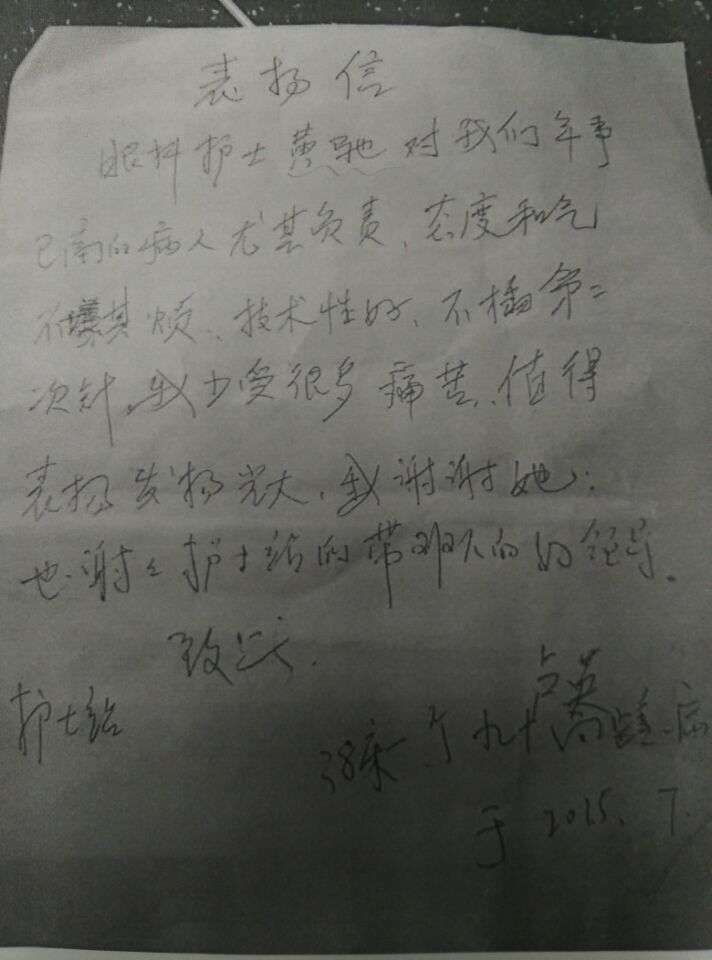 表扬信
眼科护士黄艳对我们年事
已高的病人尤其负责、态度和气
不嫌其烦、技术性好、不插第二
次针,我少受很多痛苦、值得
表扬发扬光大,我谢谢她;
也谢谢护士站的带班的领导。
致
护士站
卢英
38床 个九十高龄病
于2015.7.